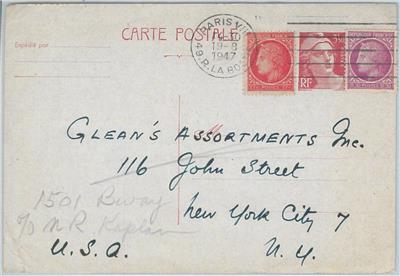 CARTE POSTALE
Expédié par
PARIS VIII
19-8
1947
49.R.LA BO
RF
GLEAN'S ASSORTMENTS Inc.
116 John Street
New York City 7
U.S.A. N.Y.
1501 Bway
c/o N R Kaplan